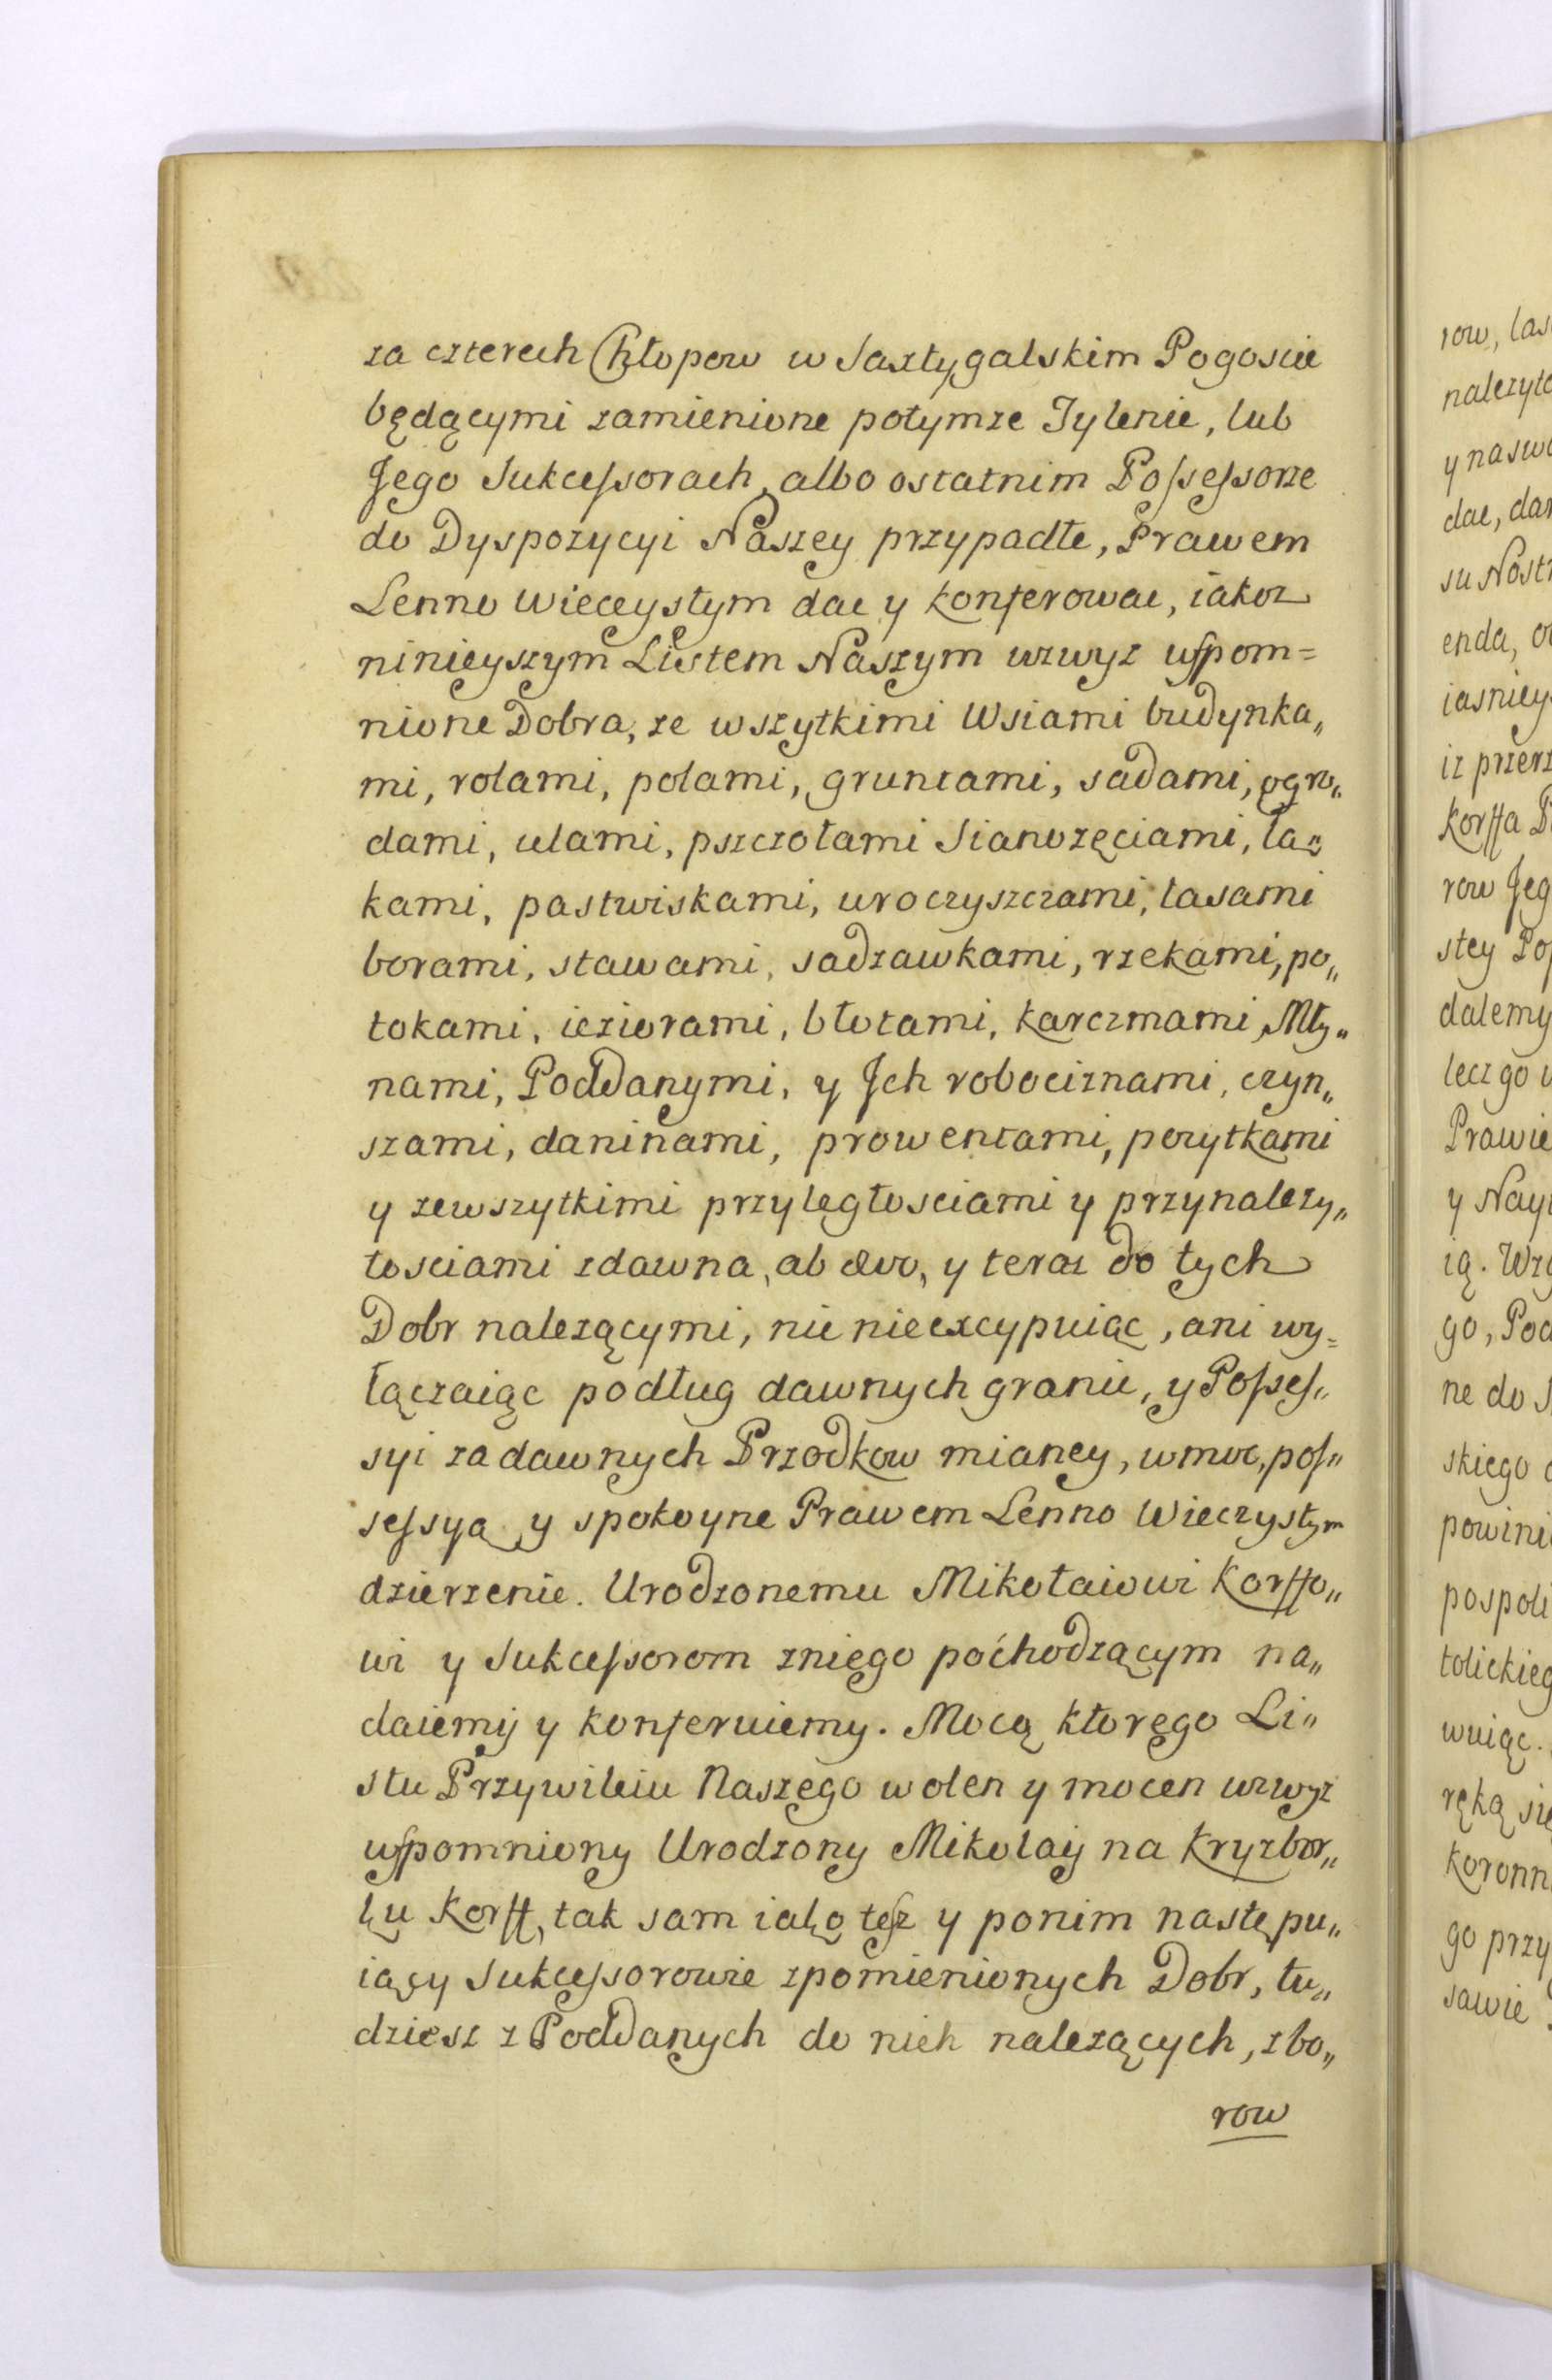 za czterech Chłopow w Saxtygalskim Pogoscie
będącymi zamienione potymze Tylenie, lub
Jego Sukcessorach, albo ostatnim Possessorze
do Dyspozycyi Naszey przypadłe, Prawem
Lenno Wieceystym dac y konferowac, iakoz
ninieyszym Listem Naszym wzwyz wspom=
nione Dobra, ze wszytkimi Wsiami budynka„
mi, rolami, polami, gruntami, sadami, ogro„
dami, ulami, pszczołami Sianozęciami, łą=
kami, pastwiskami, uroczyszczami, lasami
borami, stawami, sadzawkami, rzekami, po„
tokami, ieziorami, błotami, karczmami Mły„
nami, Poddanymi, y Jch robociznami, czyn„
szami, daninami, prowentami, pozytkami
y zewszytkimi przyległosciami y przynalezy„
tosciami zdawna, ab ævo, y teraz do tych
Dobr nalezącymi, nic nieexcypuiąc, ani wy=
łączaiąc podług dawnych granic, y Posses„
syi za dawnych Przodkow mianey, wmoc, pos„
sessyą y spokoyne Prawem Lenno Wieczystym
dzierzenie. Urodzonemu Mikołaiowi Korffo„
wi y Sukcessorom zniego pochodzącym na„
daiemy y konferuiemy. Mocą ktorego Li„
stu Przywileiu Naszego wolen y mocen wzwyz
wspomniony Urodzony Mikolaij na Kryzbor„
ku Korff, tak sam iako tesz y ponim nastę pu„
iący Sukcessorowie zpomienionych Dobr, tu„
dziesz z Poddanych do nich nalezących, zbo„
row
row, las
nalezyto
y naswo
dac, dar
su Nostr
enda, o
iasniey
iz przerz
Korffa P
row Jeg
stey Po
dalemy
lecz go
Prawie
y Nay
ią. Wzg
go, Pod
ne do S
skiego
powini
pospoli
tolickieg
wuiąc.
ręką się
koronn
go przy
sawie